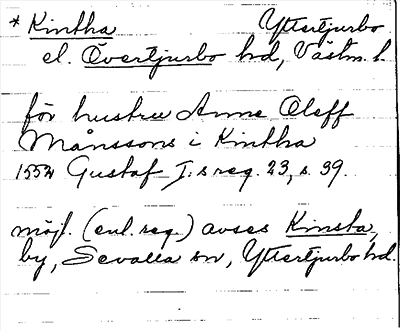 * Kintha Yttertjurbo
el. Övertjurbo hd, Västm. l.
för hustru Anne Oleff
Månssons i Kintha
1552 Gustaf I:s reg. 23, s. 39.
möjl. (enl. reg.) avses Kinsta,
by, Sevalla sn, Yttertjurbo hd.